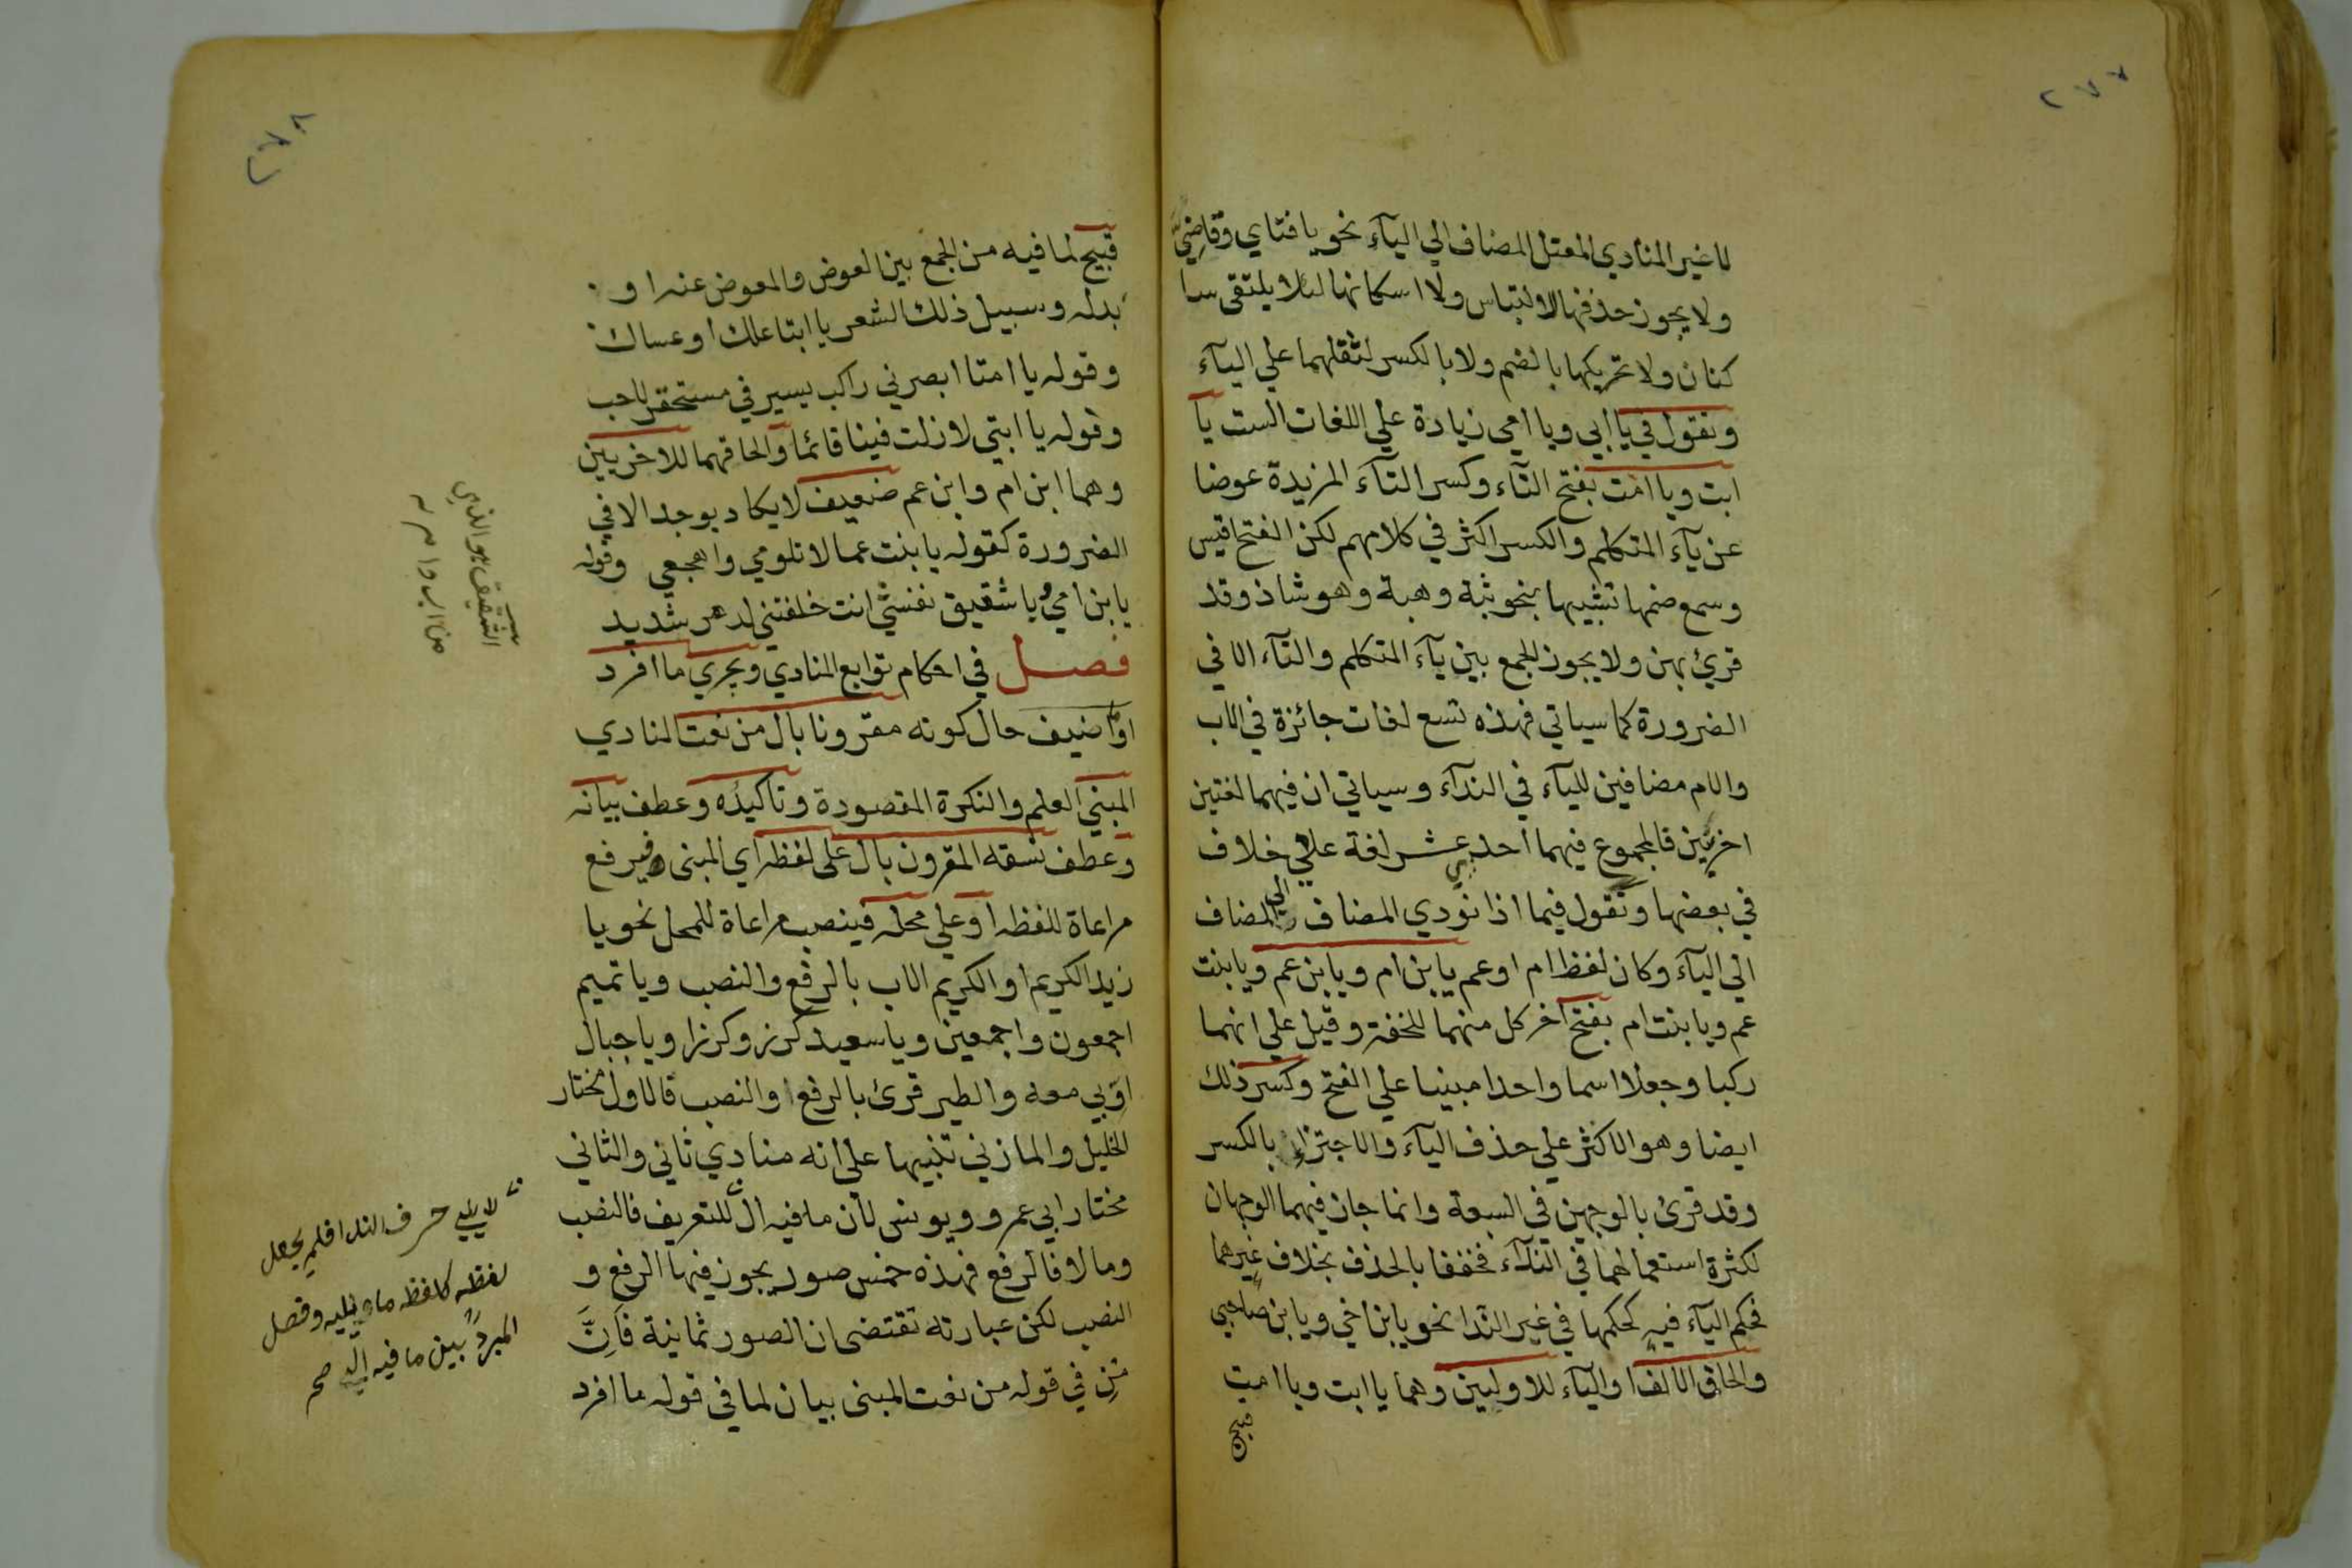 ٢٧٧
لا غير المنادي المعتل المضاف الي اليآء نحو يا فتاي وقاضيّ
ولا يجوز حذفها لالتباس ولا اسكانها لئلا يلتقى سا
كنان ولا تحريكها بالضم ولا بالكسر لثقلهما علي اليآء
وتقول في يا ابي ويا امي زيادة علي اللغات الست يا
ابت ويا امت بفتح التآء وكسر التآء المزيدة عوضا
عن يآء المتكلم والكسر اكثر في كلامهم لكن الفتح اقيس
وسمع ضمها تشبيها بنحو ثبة وهبة وهو شاذ وقد
قرئ بهن ولا يجوز الجمع بين يآء المتكلم والتآء الا في
الضرورة كما سياتي فهذه تسع لغات جائزة في الاب
والام مضافين لليآء في الندآء وسياتي ان فيهما لغتين
اخريين فالمجموع فيهما احد عشر لغة علي خلاف
في بعضها وتقول فيما اذا نودي المضاف الي المضاف
الي اليآء وكان لفظ ام او عم يابن ام ويابن عم ويا بنت
عم ويا بنت ام بفتح آخر كل منهما للخفة وقيل علي انهما
ركبا وجعلا اسما واحدا مبنيا علي الفتح وكسر ذلك
ايضا وهو الاكثر علي حذف اليآء والاجتزاء بالكسر
وقد قرئ بالوجهين في السبعة وانما جاز فيهما الوجهان
لكثرة استعمالهما في الندآء فخففا بالحذف بخلاف غيرهما
فحكم اليآء فيه كحكمها في غير الندا نحو يابن اخي ويابن صاحبي
والحاق الالف او اليآء للاوليين وهما يا ابت ويا امت
قبيح
٢٧٨
قبيح لما فيه من الجمع بين العوض والمعوض عنه او
بدله وسبيل ذلك الشعر يا ابتا علك او عساك
وقوله يا امتا ابصرني راكب يسير في مستحقر لاحب
وقوله يا ابتي لا زلت فينا قائما والحاقهما للاخريين
وهما ابن ام وابن عم ضعيف لا يكاد يوجد الا في
الضرورة كقوله يا بنت عما لا تلومي واهجعي وقوله
يا بن امي ويا شقيق نفسي انت خلفتني لدهر شديد
فصل في احكام توابع المنادي ويجري ما افرد
او اضيف حال كونه مقرونا بال من نعت المنادي
المبني العلم والنكرة المقصودة وتاكيده وعطف بيانه
وعطف نسقه المقرون بال على لفظه اي المبنى فيرفع
مراعاة للفظه او علي محله فينصب مراعاة للمحل نحو يا
زيد الكريم او الكريم الاب بالرفع والنصب ويا تميم
اجمعون واجمعين ويا سعيد كرز وكرزا ويا جبال
اوبي معه والطير قرئ بالرفع والنصب فالاول مختار
الخليل والمازني تنبيها علي انه منادي ثاني والثاني
مختار ابي عمرو ويونس لان ما فيه ال للتعريف فالنصب
وما لا فالرفع فهذه خمس صور يجوز فيها الرفع و
النصب لكن عبارته تقتضى ان الصور ثمانية فانّ
مِن في قوله من نعت المبنى بيان لما في قوله ما افرد
الشقيق هو الذي
من اب وام
لا يلي حرف الندا فلم يجعل
لفظه كلفظ ما يليه وفصل
المبرد بين ما فيه ال صح